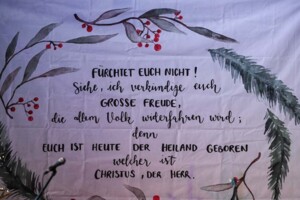 FÜRCHTET EUCH NICHT!
Siehe, ich verkündige euch
GROSSE FREUDE,
die allem Volk widerfahren wird;
denn
EUCH IST HEUTE DER HEILAND GEBOREN
welcher ist
CHRISTUS, DER HERR.